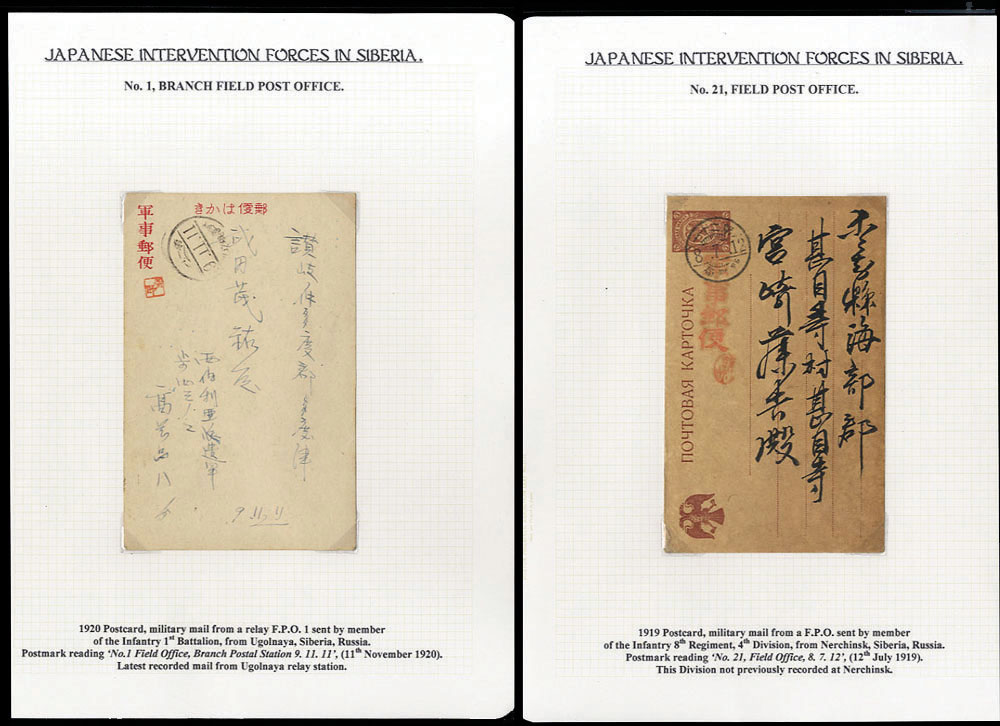 JAPANESE INTERVENTION FORCES IN SIBERIA.
No. 1, BRANCH FIELD POST OFFICE.
軍事郵便
郵便はかき
讃岐仲多度郡多度津
西伯利亜派遣軍
9. 11. 11
1920 Postcard, military mail from a relay F.P.O. 1 sent by member
of the Infantry 1st Battalion, from Ugolnaya, Siberia, Russia.
Postmark reading ‘No.1 Field Office, Branch Postal Station 9. 11. 11’, (11th November 1920).
Latest recorded mail from Ugolnaya relay station.
JAPANESE INTERVENTION FORCES IN SIBERIA.
No. 21, FIELD POST OFFICE.
縣海部郡
甚目寺村甚目寺
宮崎藤吉殿
事郵便
ПОЧТОВАЯ КАРТОЧКА
1919 Postcard, military mail from a F.P.O. sent by member
of the Infantry 8th Regiment, 4th Division, from Nerchinsk, Siberia, Russia.
Postmark reading ‘No. 21, Field Office, 8. 7. 12’, (12th July 1919).
This Division not previously recorded at Nerchinsk.